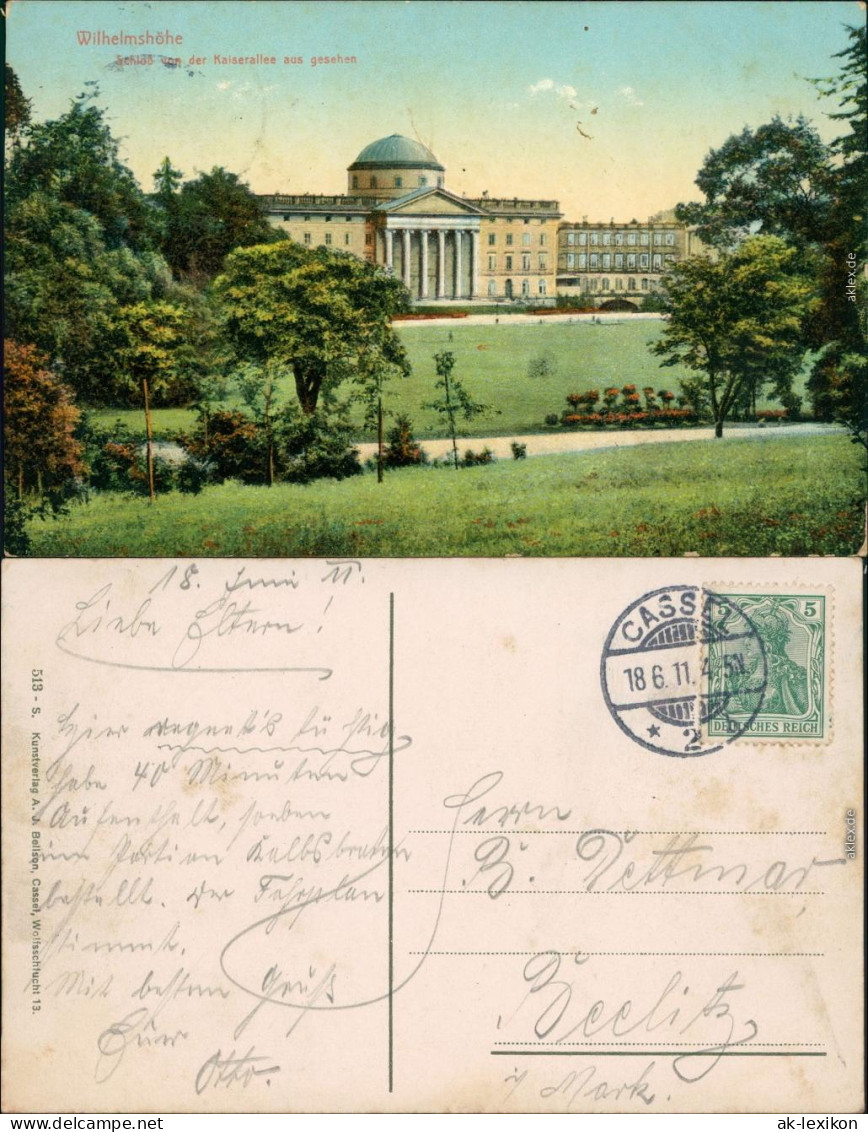 Wilhelmshöhe
Schloß von der Kaiserallee aus gesehen
aklex.de
18. Juni 11.
Liebe Eltern!
Hier regnet's tüchtig
habe 40 Minuten
Aufenthalt, soeben
eine Portion Kalbsbraten
bestellt. Der Fahrplan
stimmt.
Mit bestem Gruß
Euer
Otto.
513 - S. Kunstverlag A. J. Bellson, Cassel, Wolfsschlucht 13.
CASSEL
18.6.11. 4-5N
* 2
5 5
DEUTSCHES REICH
Herrn
B. Dettmar
Beelitz
i/ Mark.
aklex.de
www.ak-lexikon.de
ak-lexikon